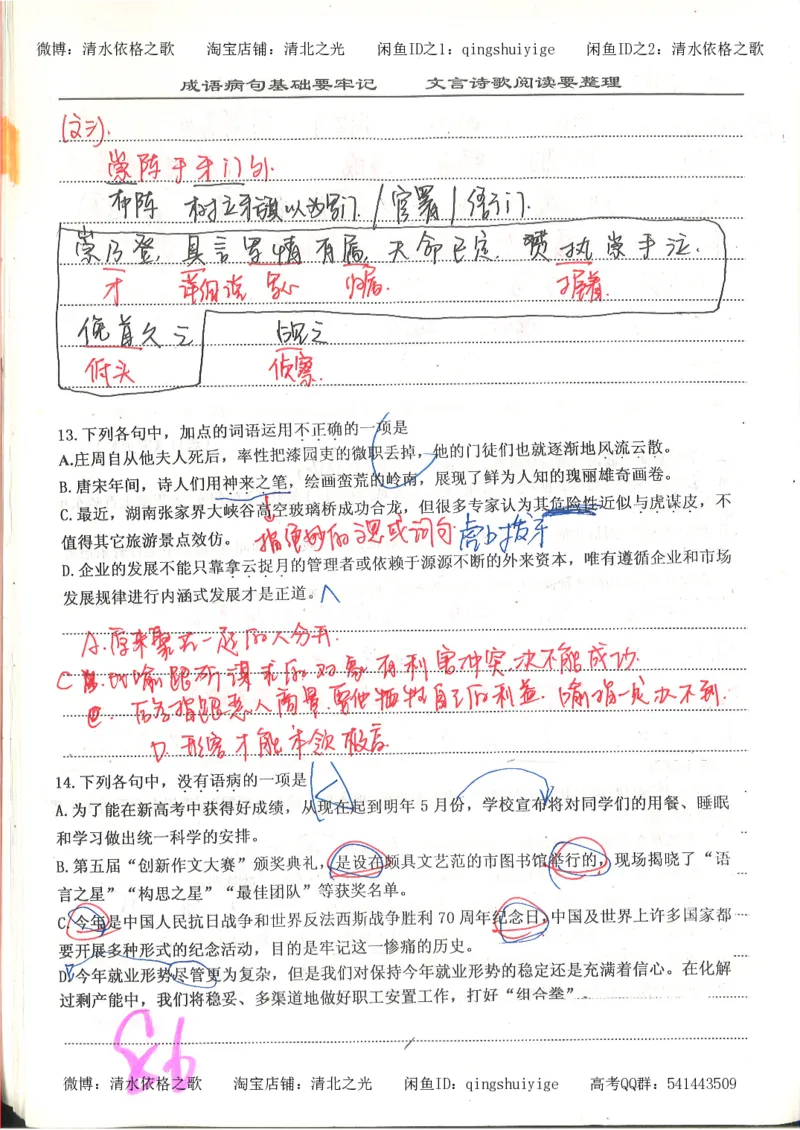 微博：清水依格之歌 淘宝店铺：清北之光 闲鱼ID之1：qingshuiyige 闲鱼ID之2：清水依格之歌
成语病句基础要牢记 文言诗歌阅读要整理
(文言).
崇阵于牙门外.
布阵 树立牙旗以为军门 / 官署 / 衙门.
崇乃登, 具言军情有属, 天命已定. 赟执崇手泣.
才 详细说 军心 归属. 握着.
俛首久之 觇之
低头 侦察.
13.下列各句中，加点的词语运用不正确的一项是
A.庄周自从他夫人死后，率性把漆园吏的微职丢掉，他的门徒们也就逐渐地风流云散。
B.唐宋年间，诗人们用神来之笔，绘画蛮荒的岭南，展现了鲜为人知的瑰丽雄奇画卷。
C.最近，湖南张家界大峡谷高空玻璃桥成功合龙，但很多专家认为其危险性近似与虎谋皮，不
值得其它旅游景点效仿。 指绝妙的文思或词句 虎口拔牙
D.企业的发展不能只靠拿云捉月的管理者或依赖于源源不断的外来资本，唯有遵循企业和市场
发展规律进行内涵式发展才是正道。
A.原来聚在一起的人分开.
C 比喻跟所谋求的对象有利害冲突,决不能成功.
后多指跟恶人商量,要他牺牲自己的利益,一定办不到.
D.形容才能本领极高
14.下列各句中，没有语病的一项是
A.为了能在新高考中获得好成绩，从现在起到明年 5 月份，学校宣布将对同学们的用餐、睡眠
和学习做出统一科学的安排。
B.第五届“创新作文大赛”颁奖典礼，是设在颇具文艺范的市图书馆举行的，现场揭晓了“语
言之星”“构思之星”“最佳团队”等获奖名单。
C.今年是中国人民抗日战争和世界反法西斯战争胜利 70 周年纪念日，中国及世界上许多国家都
要开展多种形式的纪念活动，目的是牢记这一惨痛的历史。
D.今年就业形势尽管更为复杂，但是我们对保持今年就业形势的稳定还是充满着信心。在化解
过剩产能中，我们将稳妥、多渠道地做好职工安置工作，打好“组合拳”。
93
微博：清水依格之歌 淘宝店铺：清北之光 闲鱼ID：qingshuiyige 高考QQ群：541443509